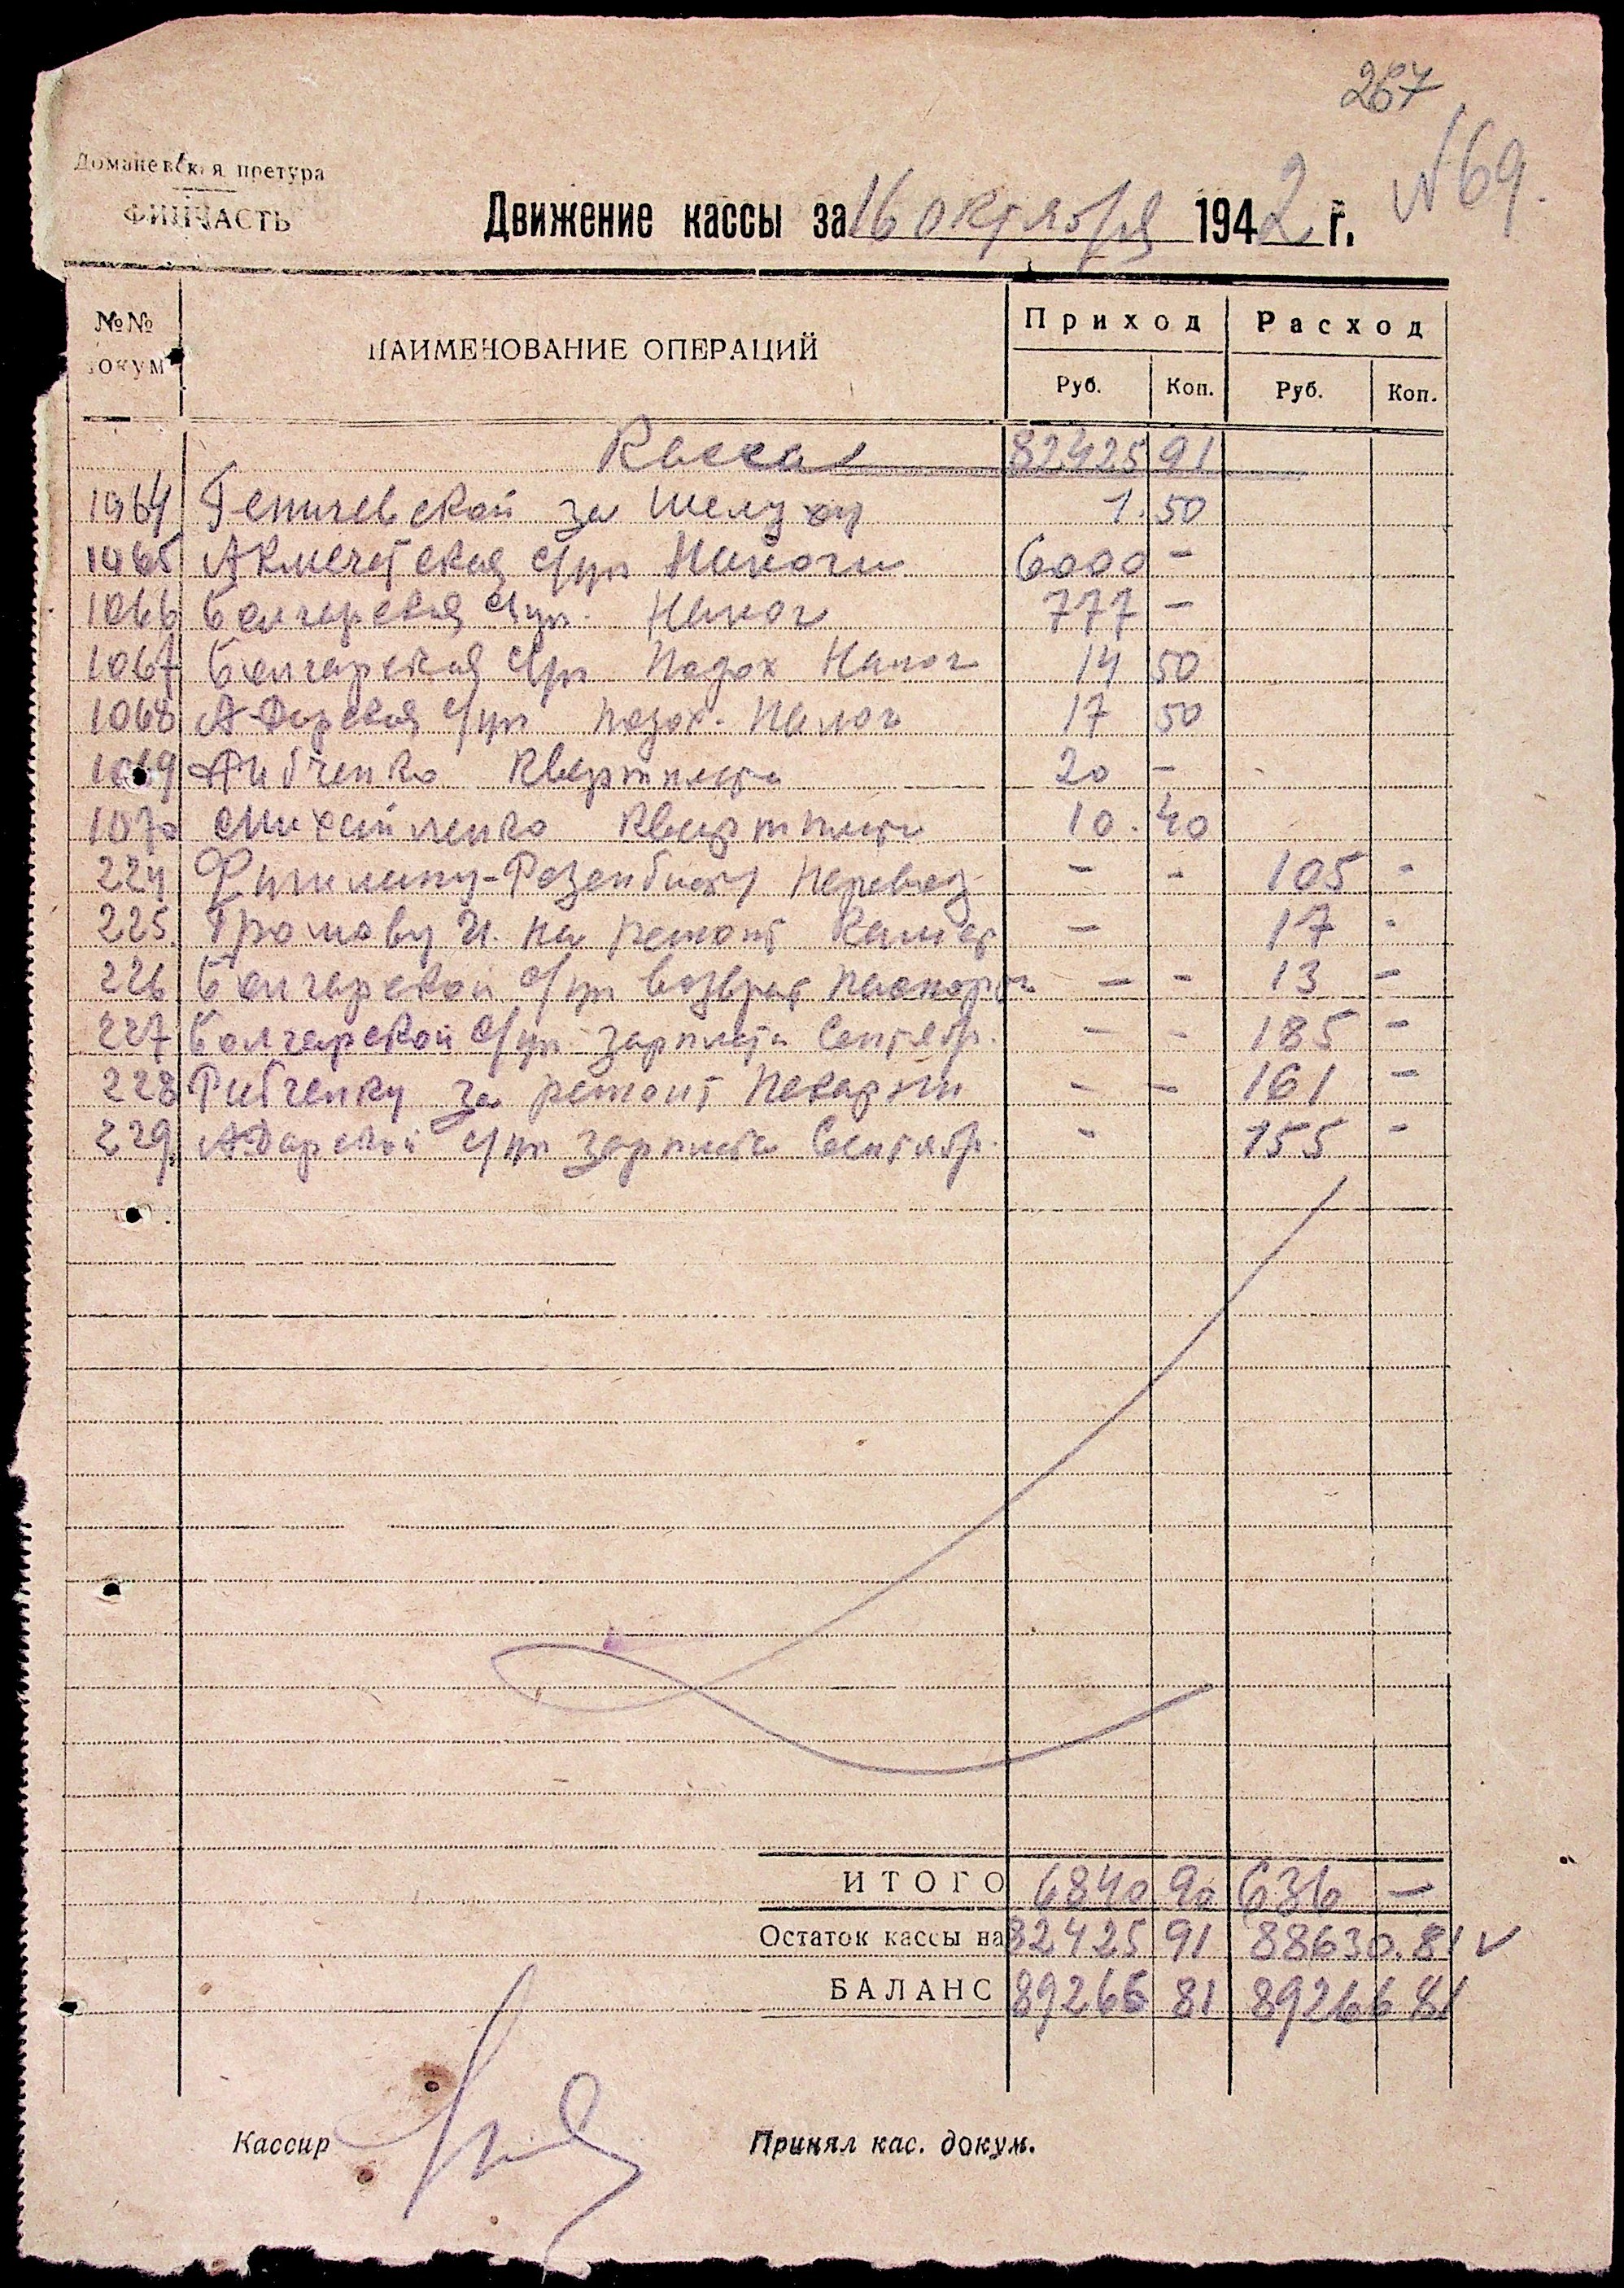 267
№ 69.
Доманевская претура
ФИНЧАСТЬ
Движение кассы за 16 октября 1942 г.
№№ докум НАИМЕНОВАНИЕ ОПЕРАЦИЙ Приход Расход
Руб. Коп. Руб. Коп.
Касса 82425 91
1064 за Шелуху 1. 50
1065 Акмечетская с/уп Налоги 6000 -
1066 Болгарская с/уп. Налог 777 -
1067 Болгарская с/уп Подох Налог 14 50
1068 Адарская с/уп подох. Налог 17 50
1069 квартплата 20 -
1070 Михайленко квартплата 10. 40
224 Розенблат Перевоз - - 105 -
225 Громову И. на ремонт - 17 -
226 Болгарской с/уп возврат - - 13 -
227 Болгарской с/уп зарплата Сентябр. - - 185 -
228 Рибченку за ремонт Пекарни - - 161 -
229. Адарской с/уп зарплата Сентябр. - 155 -
ИТОГО 6840 90 636 -
Остаток кассы на 82425 91 88630. 81 ✓
БАЛАНС 89266 81 89266 81
Кассир Принял кас. докум.